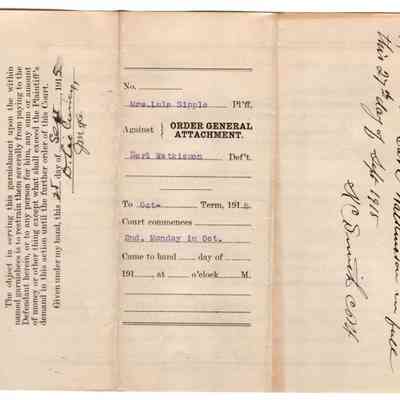 The object in serving this garnishment upon the within
named garnishees is to restrain them severally from paying to the
Defendant herein, or to any person for him, any sum or amount
of money or other thing except what shall exceed the Plaintiff's
demand in this action until the further order of this Court.
Given under my hand, this 25 day of Sept 1915
No.
Mrs. Lula Sipple Pl'ff.
Against } ORDER GENERAL
ATTACHMENT.
Earl Watkinson Def't.
To Oct- Term, 1915.
Court commences
2nd. Monday in Oct.
Came to hand day of
191 at o'clock M.
in full
this 27th day of Sept 1915